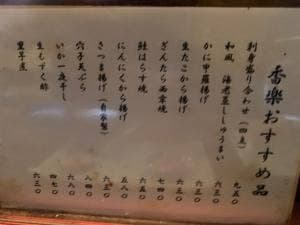 香楽おすすめ品
刺身盛り合わせ(四点) 九五〇
和風 海老蒸ししゅうまい 六三〇
かに甲羅揚げ 六三〇
生たこから揚げ 六三〇
ぎんたら西京焼 七四〇
鮭はらす焼 六五〇
にんにくから揚げ 五八〇
さつま揚げ(自家製) 六三〇
穴子天ぷら 八四〇
いか一夜干し 六八〇
生もずく酢 四七〇
六三〇